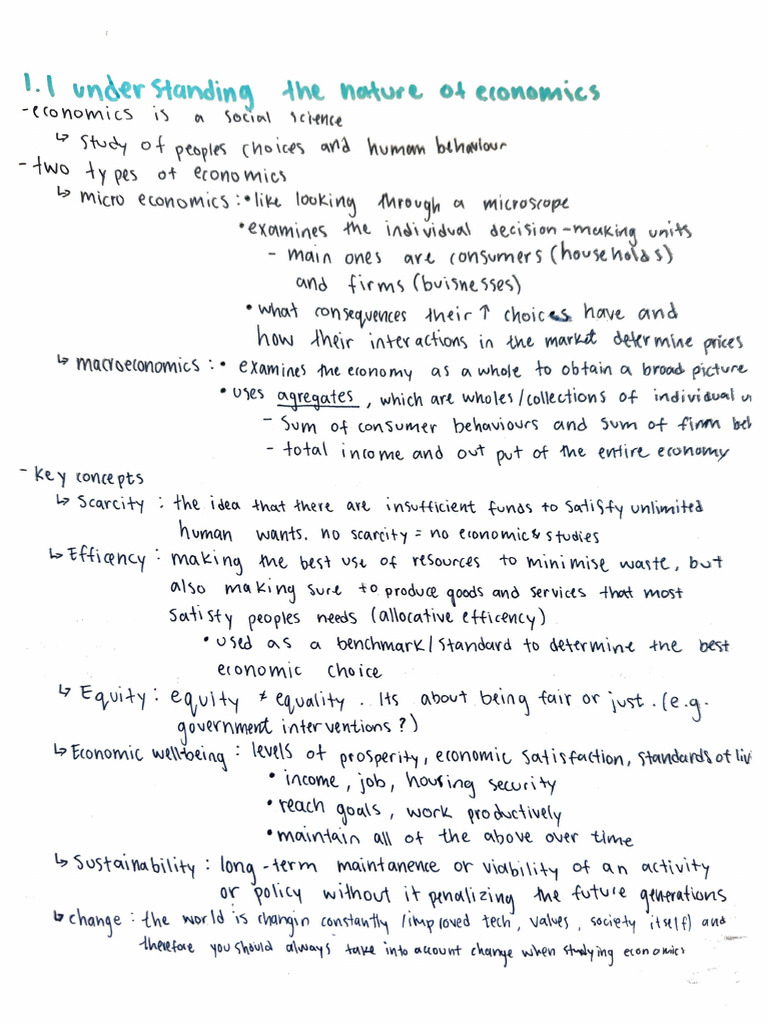 1.1 understanding the nature of economics
-economics is a social science
↳ Study of peoples choices and human behaviour
- two types of economics
↳ micro economics : • like looking through a microscope
• examines the individual decision-making units
- main ones are consumers (households)
and firms (buisnesses)
• what consequences their ↑ choices have and
how their interactions in the market determine prices
↳ macroeconomics : • examines the economy as a whole to obtain a broad picture
• uses agregates , which are wholes/collections of individual
- Sum of consumer behaviours and sum of firm
- total income and out put of the entire economy
- key concepts
↳ Scarcity : the idea that there are insufficient funds to satisfy unlimited
human wants. no scarcity = no economics studies
↳ Efficency : making the best use of resources to minimise waste, but
also making sure to produce goods and services that most
satisty peoples needs (allocative efficency)
• used as a benchmark/standard to determine the best
economic choice
↳ Equity : equity ≠ equality . Its about being fair or just . (e.g.
government interventions ?)
↳ Economic well-being : levels of prosperity, economic satisfaction, standards of
• income , job, housing security
• reach goals , work productively
• maintain all of the above over time
↳ Sustainability : long-term maintanence or viability of an activity
or policy without it penalizing the future generations
↳ change : the world is changin constantly (improved tech, values, society itself) and
therefore you should always take into account change when studying economics